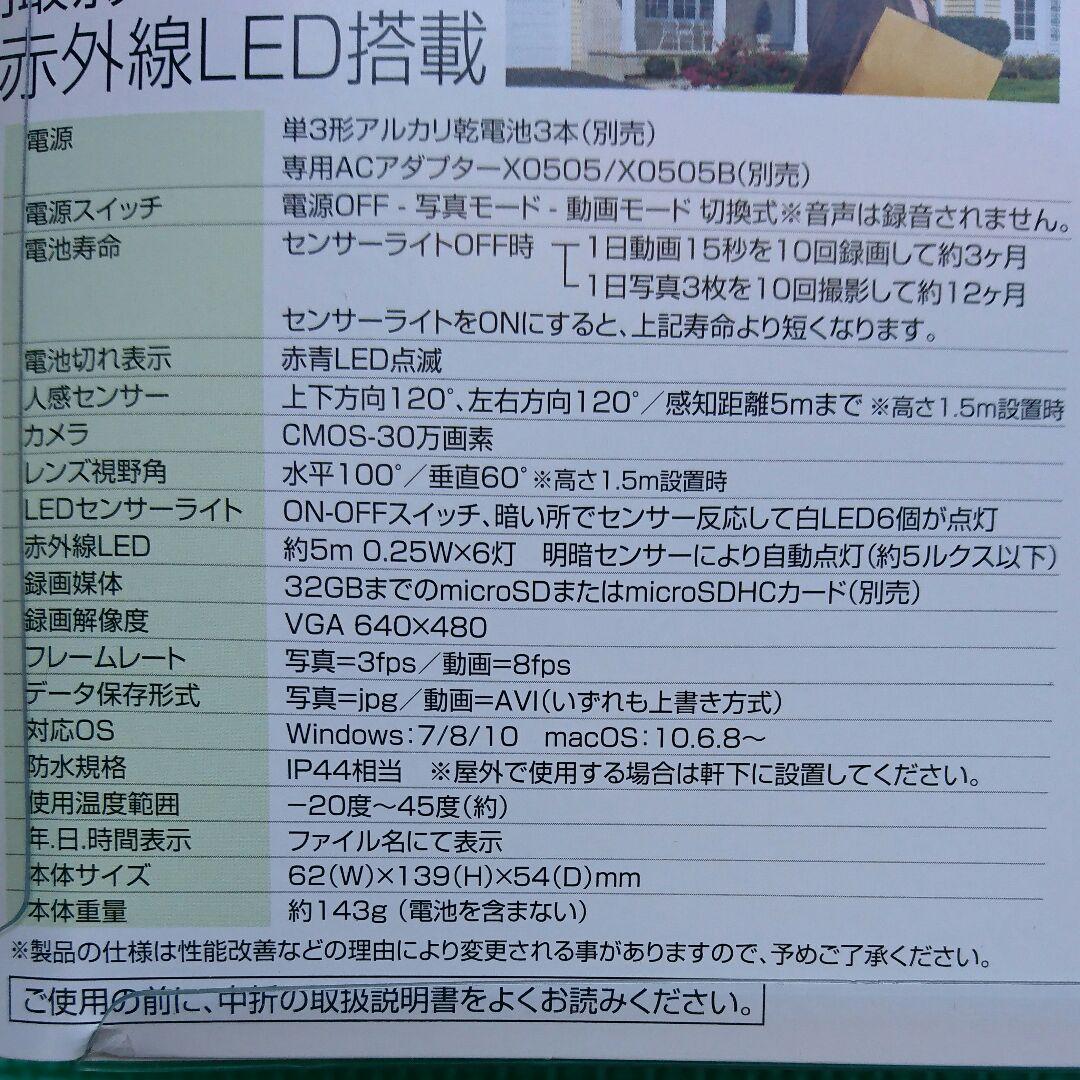 赤外線LED搭載
電源 単3形アルカリ乾電池3本(別売)
専用ACアダプターX0505/X0505B(別売)
電源スイッチ 電源OFF - 写真モード - 動画モード 切換式※音声は録音されません。
電池寿命 センサーライトOFF時 1日動画15秒を10回録画して約3ヶ月
1日写真3枚を10回撮影して約12ヶ月
センサーライトをONにすると、上記寿命より短くなります。
電池切れ表示 赤青LED点滅
人感センサー 上下方向120°、左右方向120°/感知距離5mまで ※高さ1.5m設置時
カメラ CMOS-30万画素
レンズ視野角 水平100°/垂直60°※高さ1.5m設置時
LEDセンサーライト ON-OFFスイッチ、暗い所でセンサー反応して白LED6個が点灯
赤外線LED 約5m 0.25W×6灯 明暗センサーにより自動点灯(約5ルクス以下)
録画媒体 32GBまでのmicroSDまたはmicroSDHCカード(別売)
録画解像度 VGA 640×480
フレームレート 写真=3fps/動画=8fps
データ保存形式 写真=jpg/動画=AVI(いずれも上書き方式)
対応OS Windows:7/8/10 macOS:10.6.8〜
防水規格 IP44相当 ※屋外で使用する場合は軒下に設置してください。
使用温度範囲 −20度〜45度(約)
年.日.時間表示 ファイル名にて表示
本体サイズ 62(W)×139(H)×54(D)mm
本体重量 約143g (電池を含まない)
※製品の仕様は性能改善などの理由により変更される事がありますので、予めご了承ください。
ご使用の前に、中折の取扱説明書をよくお読みください。